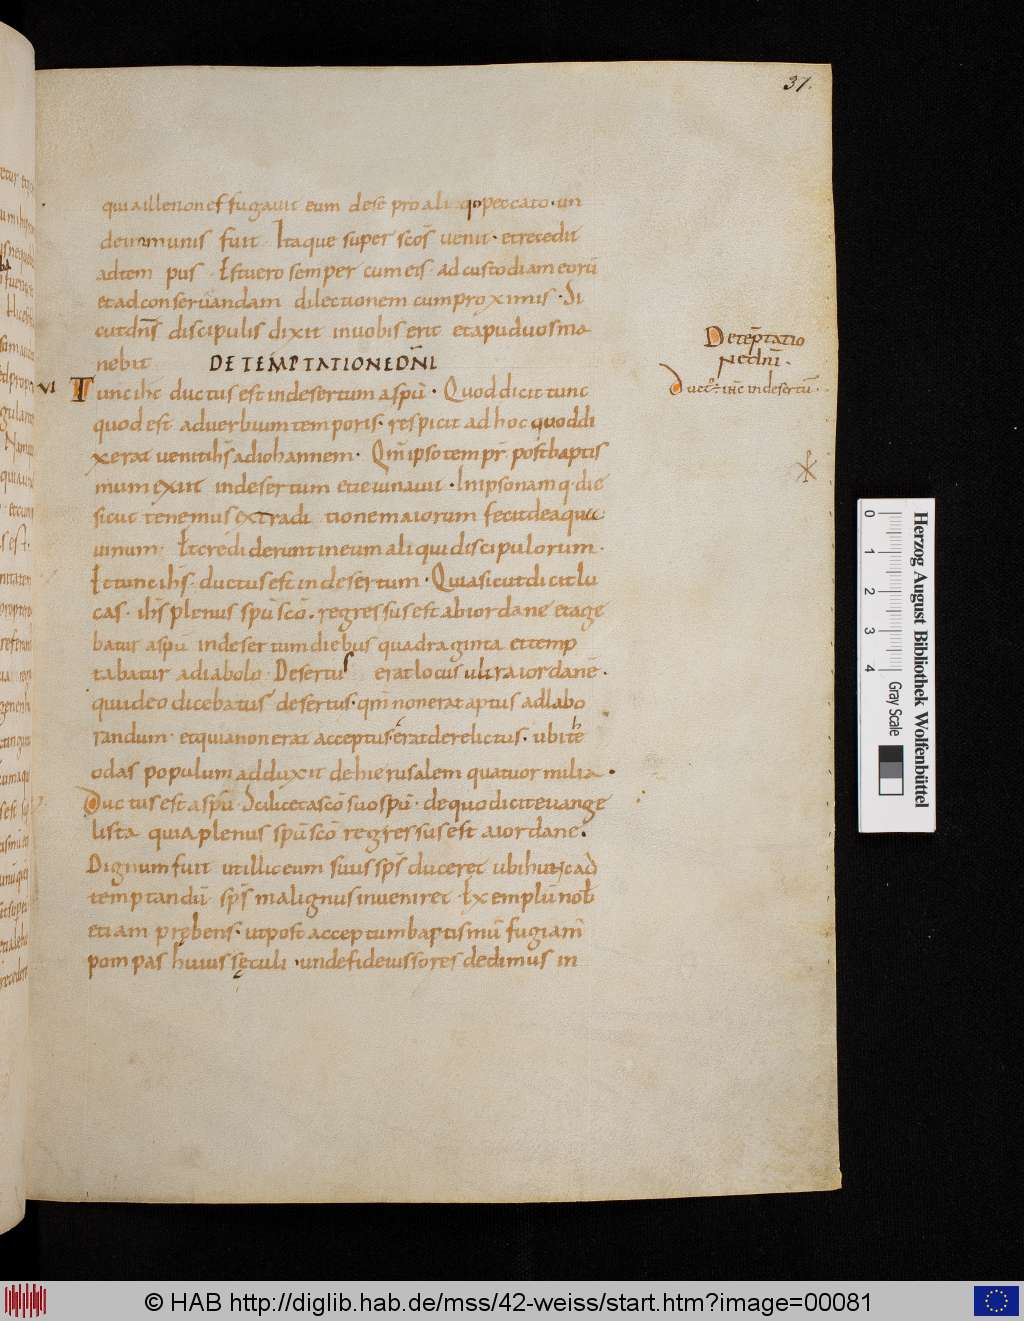 37.
qui aillenonef fugauit eum dese pro aliquo peccato · un
de immunis fuit · Itaque super scōs uenit · et recedit
ad tempus · Est uero semper cum eis · ad custodiam eorū
et ad conseruandam dilectionem cum proximis · Si
cut dn̄s discipulis dixit in uobis erit et apud uos ma
nebit DE TEMPTATIONE DN̄I
VI Tunc ih̄c ductus est in desertum a spū · Quod dicit tunc
quod est aduerbium temporis · respicit ad hoc quod di
xerat uenit ih̄s ad iohannem · Qm̄ ipso tempr̄ post baptis
mum exiit in desertum et ieiunauit · In ipso namq · die
sicut tenemus ex traditione maiorum fecit de aqua
uinum · Et crediderunt in eum aliqui discipulorum ·
Et tunc ih̄s · ductus est in desertum · Quia sicut dicit lu
cas · ih̄s plenus spū scō · regressus est ab iordane et age
batur a spū in desertum diebus quadraginta et temp
tabatur a diabolo · Desertus erat locus ultra iordanē ·
qui ideo dicebatus desertus · qm̄ non erat aptus ad labo
randum · et quia non erat acceptus erat derelictus · ubi the
odas populum adduxit de hierusalem quatuor milia ·
Ductus est a spū · Scilicet a scō suo spū · de quo dicit euange
lista quia plenus spū scō regressus est a iordane ·
Dignum fuit ut illic eum suus sps̄ duceret ubi hunc ad
temptandū sps̄ malignus inueniret · Exemplū nob̄
etiam prębens · ut post acceptum baptismū fugiam̄
pompas huius sęculi · unde fideiussores dedimus in
De tēptatio
ne dn̄i ·
Duct: ih̄c in desertū ·
Herzog August Bibliothek Wolfenbüttel
0 1 2 3 4 Gray Scale
© HAB http://diglib.hab.de/mss/42-weiss/start.htm?image=00081